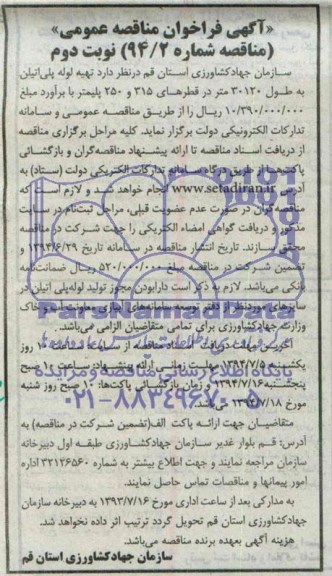 «آگهی فراخوان مناقصه عمومی»
(مناقصه شماره ۹۴/۲) نوبت دوم
سازمان جهادکشاورزی استان قم درنظر دارد تهیه لوله پلی‌اتیلن
به طول ۳۰۱۲۰ متر در قطرهای ۳۱۵ و ۲۵۰ میلیمتر با برآورد مبلغ
۱۰/۳۹۰/۰۰۰/۰۰۰ ریال را از طریق مناقصه عمومی و سامانه
تدارکات الکترونیکی دولت برگزار نماید. کلیه مراحل برگزاری مناقصه
از دریافت اسناد مناقصه تا ارائه پیشنهاد مناقصه‌گران و بازگشائی
پاکت‌ها از طریق درگاه سامانه تدارکات الکتریکی دولت (ستاد) به
آدرس www.setadiran.ir انجام خواهد شد و لازم است که
مناقصه‌گران در صورت عدم عضویت قبلی، مراحل ثبت‌نام در سایت
مذکور و دریافت گواهی امضاء الکتریکی را جهت شرکت در مناقصه
محقق سازند. تاریخ انتشار مناقصه در سامانه تاریخ ۱۳۹۴/۶/۲۹ و
تضمین شرکت در مناقصه مبلغ ۵۲۰/۰۰۰/۰۰۰ ریال ضمانت‌نامه
بانکی می‌باشد. لازم به ذکر است دارابودن مجوز تولید لوله‌پلی اتیلن در
سایزهای موردنظر از دفتر توسعه سامانه‌های آبیاری معاونت آب و خاک
وزارت جهادکشاورزی برای تمامی متقاضیان الزامی می‌باشد.
آخرین مهلت دریافت اسناد مناقصه از سامانه ساعت ۱۰ روز
یکشنبه ۱۳۹۴/۷/۵ و مهلت زمانی ارائه پیشنهاد ساعت ۱۰ صبح
پنجشنبه ۱۳۹۴/۷/۱۶ و زمان بازگشائی پاکت‌ها: ۱۰ صبح روز شنبه
مورخ ۱۳۹۴/۷/۱۸ می‌باشد.
متقاضیان جهت ارائه پاکت الف(تضمین شرکت در مناقصه) به
آدرس: قم بلوار غدیر سازمان جهادکشاورزی طبقه اول دبیرخانه
سازمان مراجعه نمایند و جهت اطلاع بیشتر به شماره ۳۲۱۳۶۵۶۰ اداره
امور پیمانها و مناقصات تماس حاصل نمایند.
به مدارکی بعد از ساعت اداری مورخ ۱۳۹۳/۷/۱۶ به دبیرخانه سازمان
جهادکشاورزی استان قم تحویل گردد ترتیب اثر داده نخواهد شد.
هزینه آگهی بعهده برنده مناقصه می‌باشد.
سازمان جهادکشاورزی استان قم
ParsNamadData
پایگاه اطلاع رسانی مناقصه و مزایده
۰۲۱-۸۸۳۴۹۶۷۰-۵